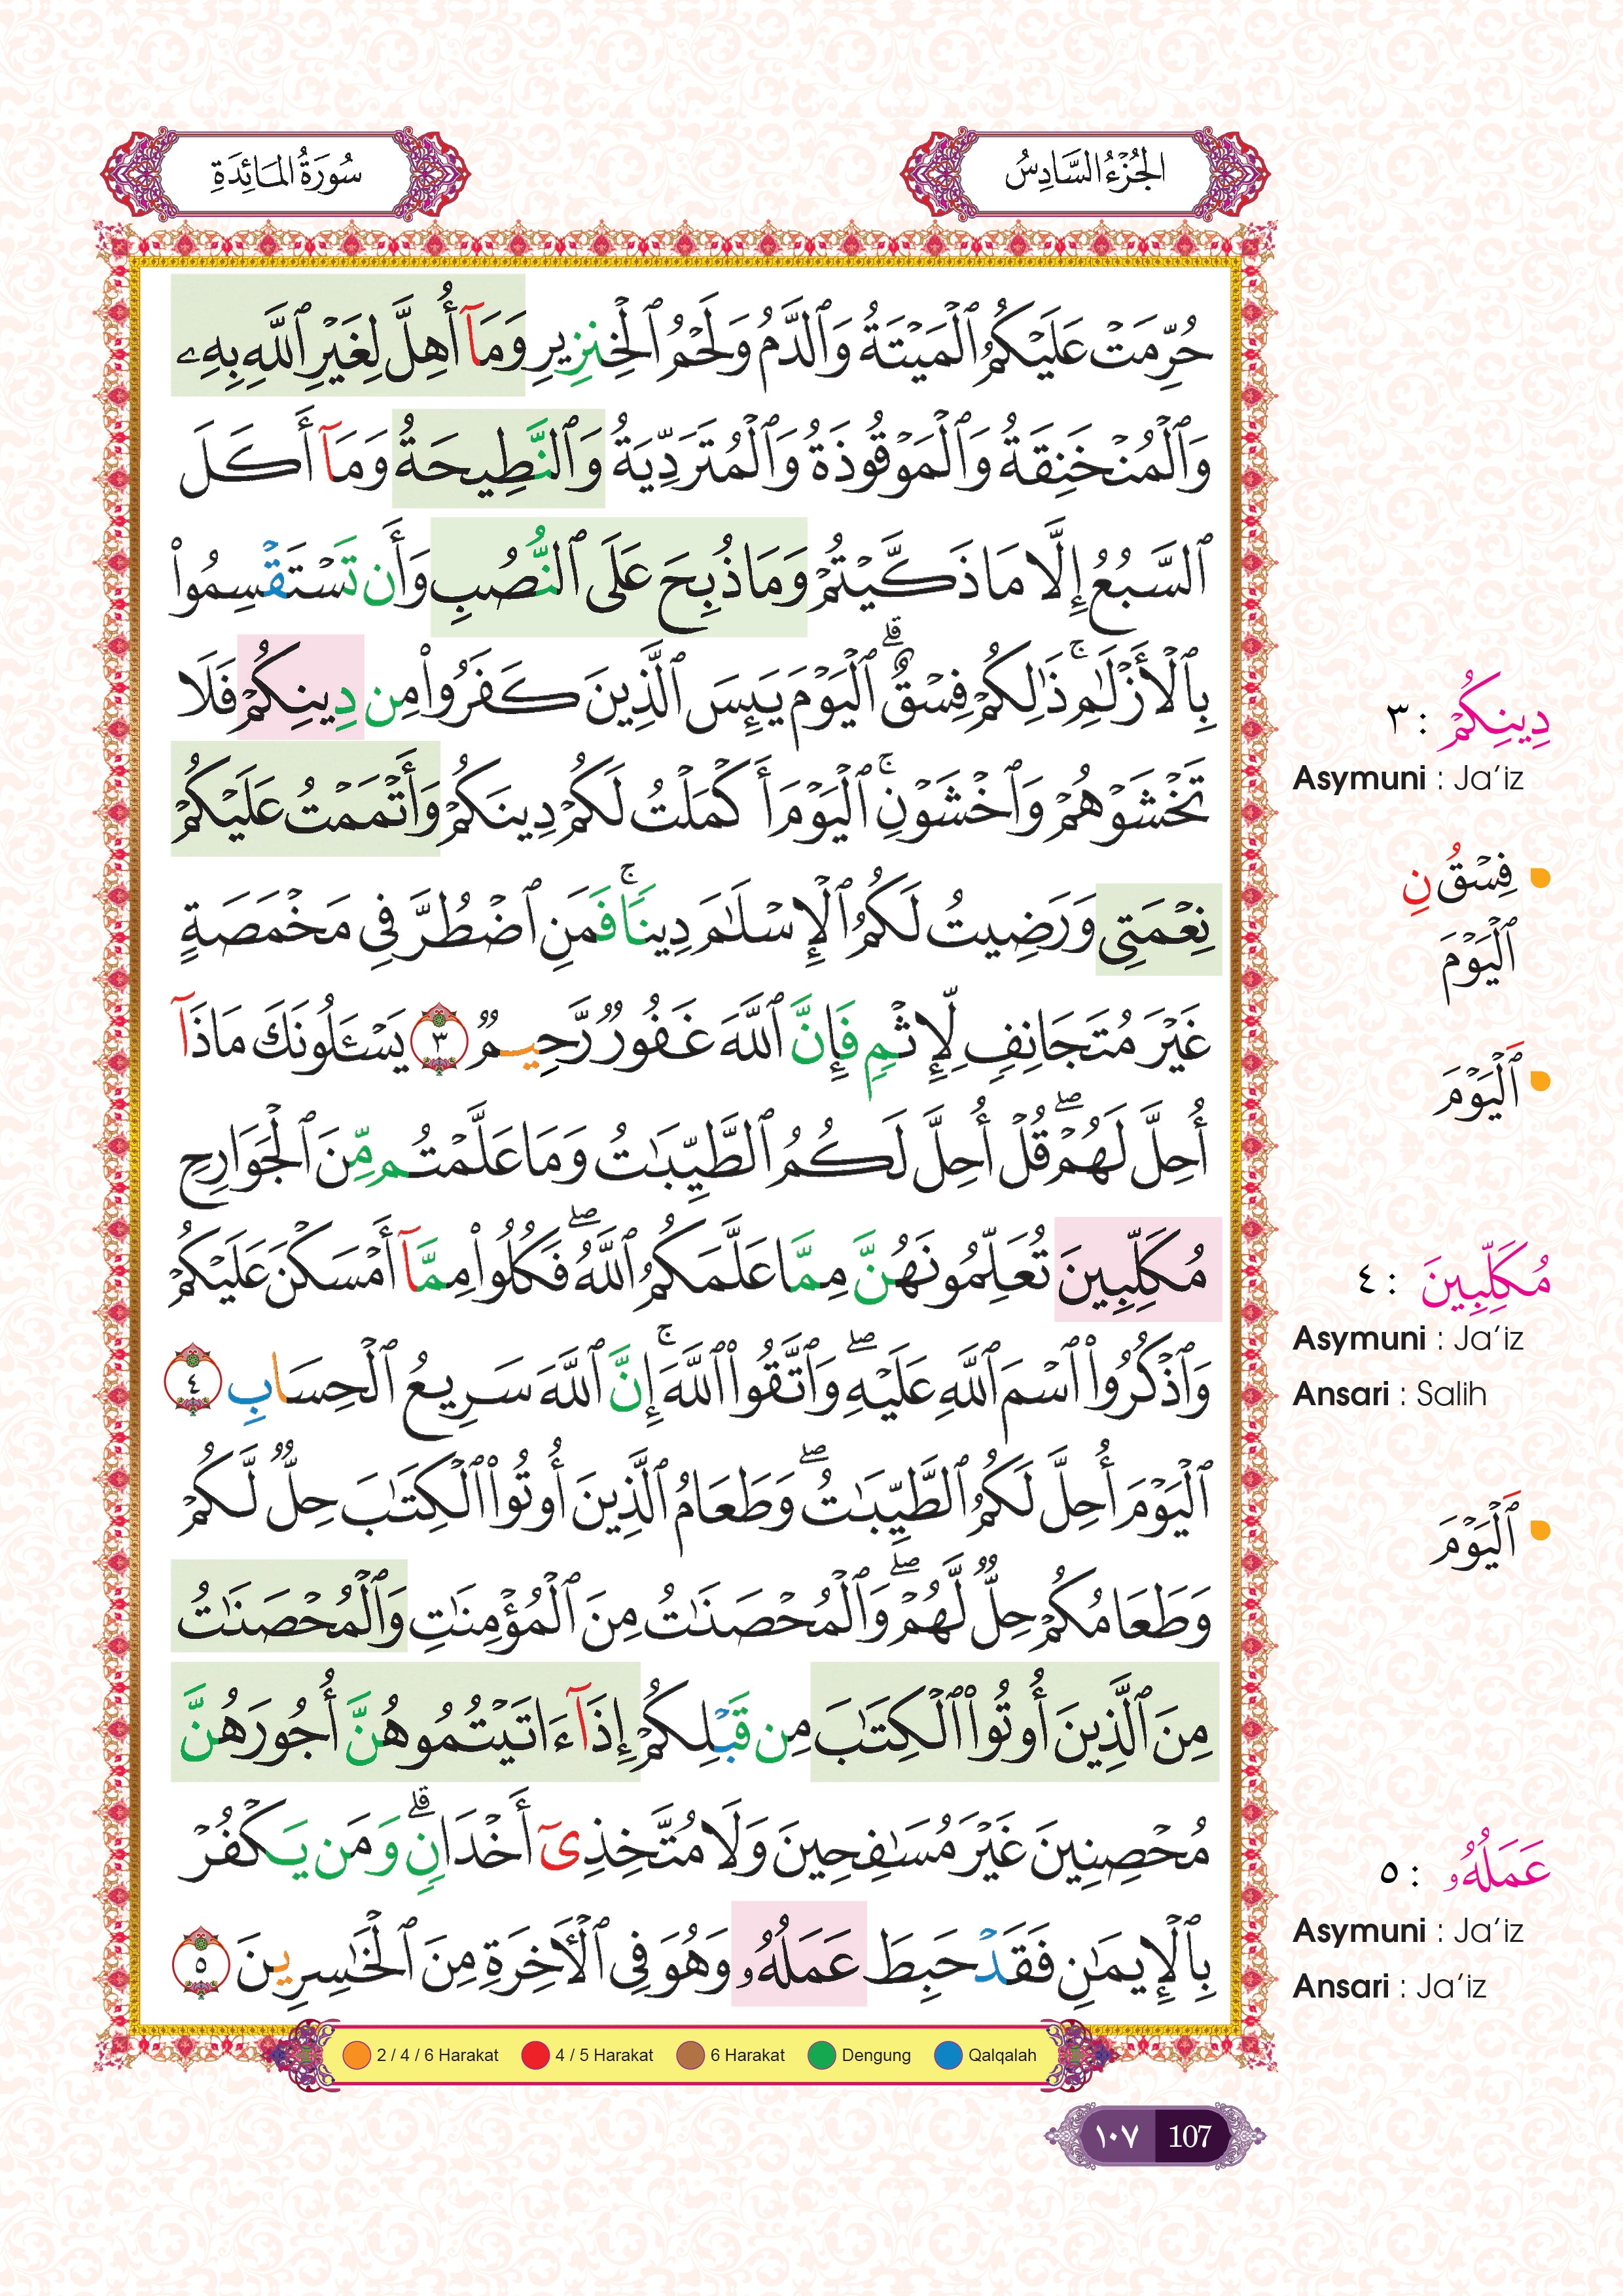 الجُزْءُ السَّادِسُ
سُورَةُ المَائِدَةِ
حُرِّمَتْ عَلَيْكُمُ ٱلْمَيْتَةُ وَٱلدَّمُ وَلَحْمُ ٱلْخِنزِيرِ وَمَآ أُهِلَّ لِغَيْرِ ٱللَّهِ بِهِۦ
وَٱلْمُنْخَنِقَةُ وَٱلْمَوْقُوذَةُ وَٱلْمُتَرَدِّيَةُ وَٱلنَّطِيحَةُ وَمَآ أَكَلَ
ٱلسَّبُعُ إِلَّا مَا ذَكَّيْتُمْ وَمَا ذُبِحَ عَلَى ٱلنُّصُبِ وَأَن تَسْتَقْسِمُوا۟
بِٱلْأَزْلَٰمِ ۚ ذَٰلِكُمْ فِسْقٌ ۗ ٱلْيَوْمَ يَئِسَ ٱلَّذِينَ كَفَرُوا۟ مِن دِينِكُمْ فَلَا
تَخْشَوْهُمْ وَٱخْشَوْنِ ۚ ٱلْيَوْمَ أَكْمَلْتُ لَكُمْ دِينَكُمْ وَأَتْمَمْتُ عَلَيْكُمْ
نِعْمَتِى وَرَضِيتُ لَكُمُ ٱلْإِسْلَٰمَ دِينًا ۚ فَمَنِ ٱضْطُرَّ فِى مَخْمَصَةٍ
غَيْرَ مُتَجَانِفٍ لِّإِثْمٍ فَإِنَّ ٱللَّهَ غَفُورٌ رَّحِيمٌ ٣ يَسْـَٔلُونَكَ مَاذَآ
أُحِلَّ لَهُمْ ۖ قُلْ أُحِلَّ لَكُمُ ٱلطَّيِّبَٰتُ وَمَا عَلَّمْتُم مِّنَ ٱلْجَوَارِحِ
مُكَلِّبِينَ تُعَلِّمُونَهُنَّ مِمَّا عَلَّمَكُمُ ٱللَّهُ ۖ فَكُلُوا۟ مِمَّآ أَمْسَكْنَ عَلَيْكُمْ
وَٱذْكُرُوا۟ ٱسْمَ ٱللَّهِ عَلَيْهِ ۖ وَٱتَّقُوا۟ ٱللَّهَ ۚ إِنَّ ٱللَّهَ سَرِيعُ ٱلْحِسَابِ ٤
ٱلْيَوْمَ أُحِلَّ لَكُمُ ٱلطَّيِّبَٰتُ ۖ وَطَعَامُ ٱلَّذِينَ أُوتُوا۟ ٱلْكِتَٰبَ حِلٌّ لَّكُمْ
وَطَعَامُكُمْ حِلٌّ لَّهُمْ ۖ وَٱلْمُحْصَنَٰتُ مِنَ ٱلْمُؤْمِنَٰتِ وَٱلْمُحْصَنَٰتُ
مِنَ ٱلَّذِينَ أُوتُوا۟ ٱلْكِتَٰبَ مِن قَبْلِكُمْ إِذَآ ءَاتَيْتُمُوهُنَّ أُجُورَهُنَّ
مُحْصِنِينَ غَيْرَ مُسَٰفِحِينَ وَلَا مُتَّخِذِىٓ أَخْدَانٍ ۗ وَمَن يَكْفُرْ
بِٱلْإِيمَٰنِ فَقَدْ حَبِطَ عَمَلُهُۥ وَهُوَ فِى ٱلْـَٔاخِرَةِ مِنَ ٱلْخَٰسِرِينَ ٥
دِينِكُمْ : ٣
Asymuni : Ja'iz
فِسْقُنِ
ٱلْيَوْمَ
اَلْيَوْمَ
مُكَلِّبِينَ : ٤
Asymuni : Ja'iz
Ansari : Salih
اَلْيَوْمَ
عَمَلُهُۥ : ٥
Asymuni : Ja'iz
Ansari : Ja'iz
2 / 4 / 6 Harakat 4 / 5 Harakat 6 Harakat Dengung Qalqalah
١٠٧ 107